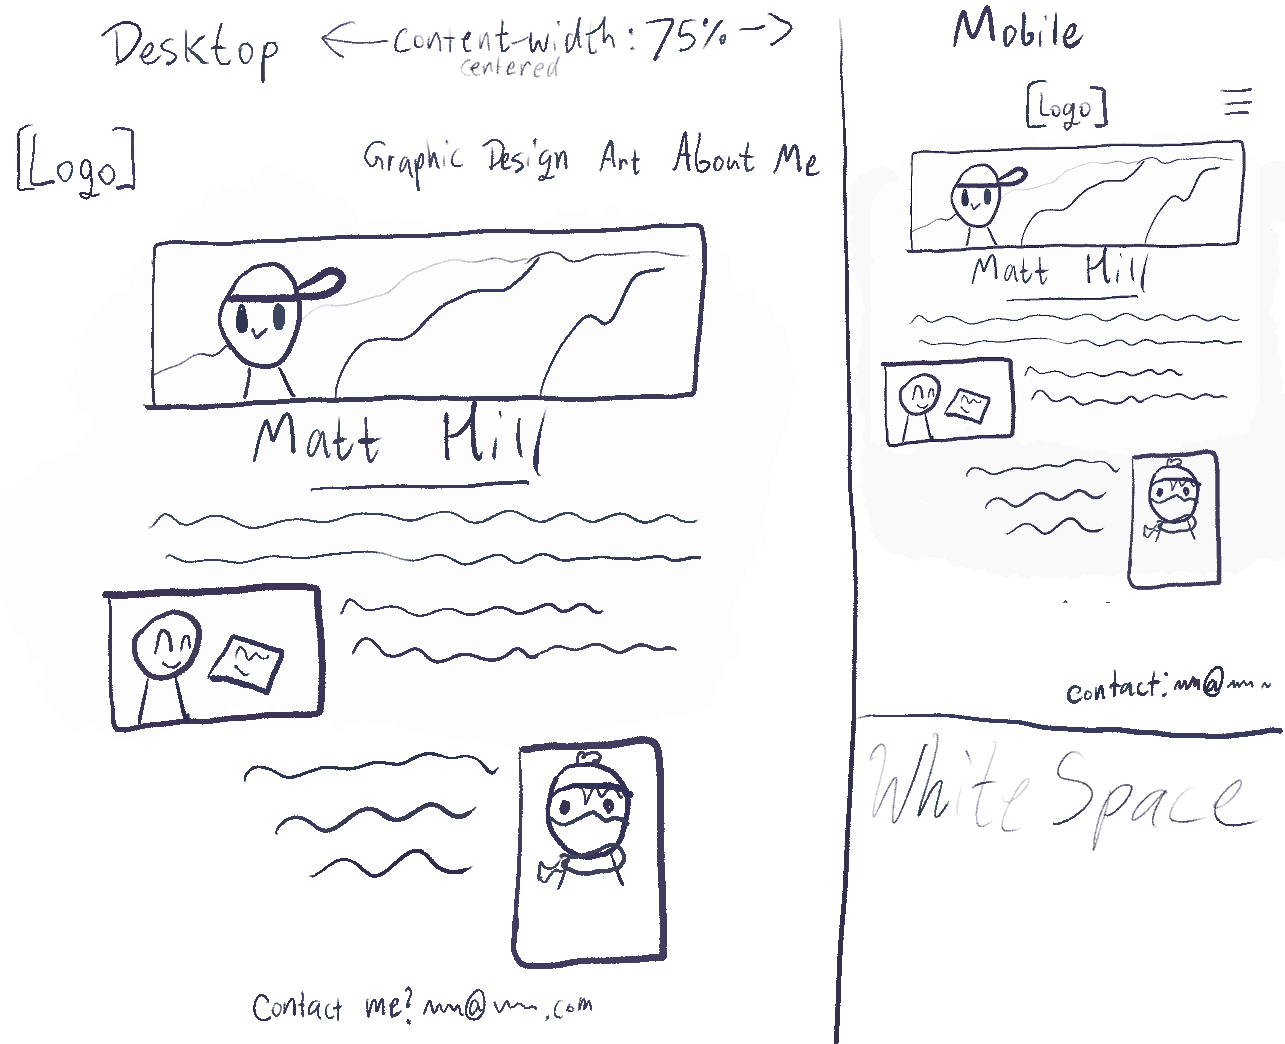 Desktop
<-content-width: 75%->
centered
[Logo]
Graphic Design Art About Me
Matt Hill
Contact me?
.com
Mobile
[Logo]
Matt Hill
contact:
White Space